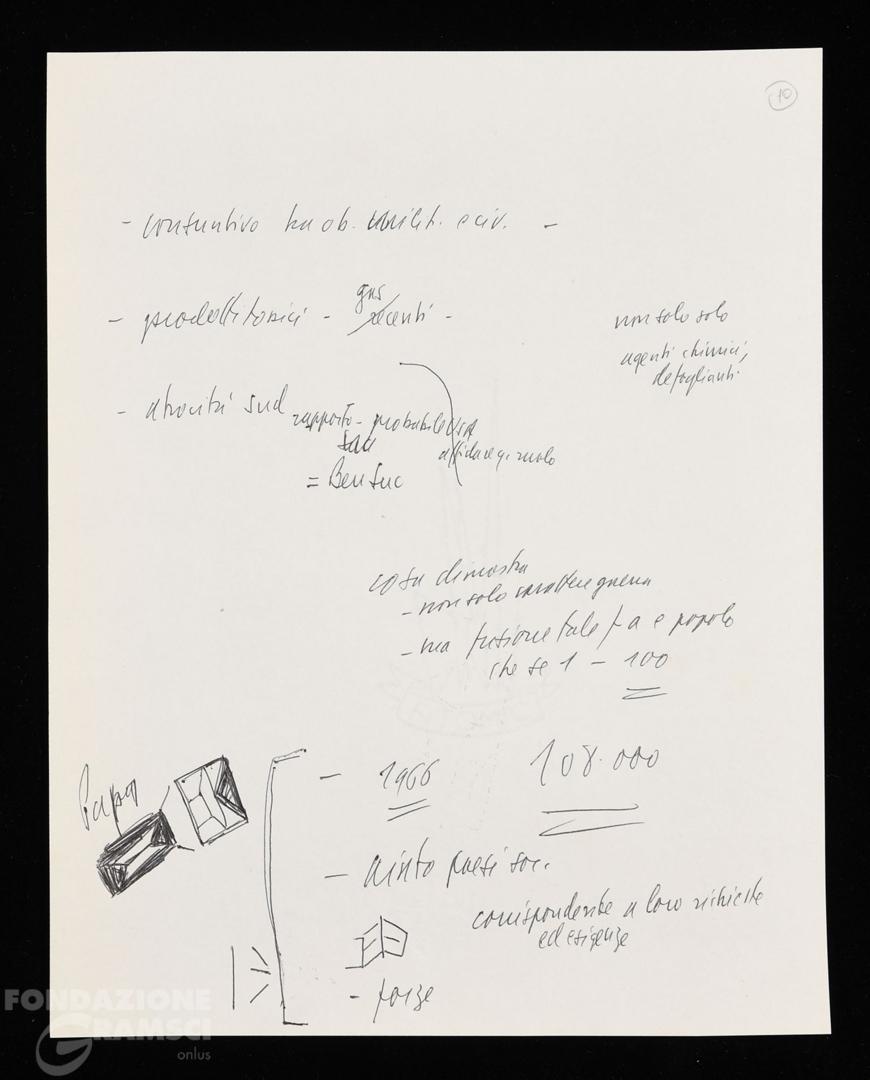 10
- consuntivo tra ob. milit. e civ. -
- prodotti tossici - gas recenti -
non solo solo
agenti chimici,
defoglianti
- atrocità Sud rapporto - probabile USA
affidare q. ruolo
= Ben Suc
cosa dimostra
- non solo carattere guerra
- ma fusione tale fra e popolo
che se 1 - 100
Papa
- 1966 108.000
- aiuto paesi soc.
corrispondente a loro richieste
ed esigenze
- forze
FONDAZIONE
GRAMSCI
onlus